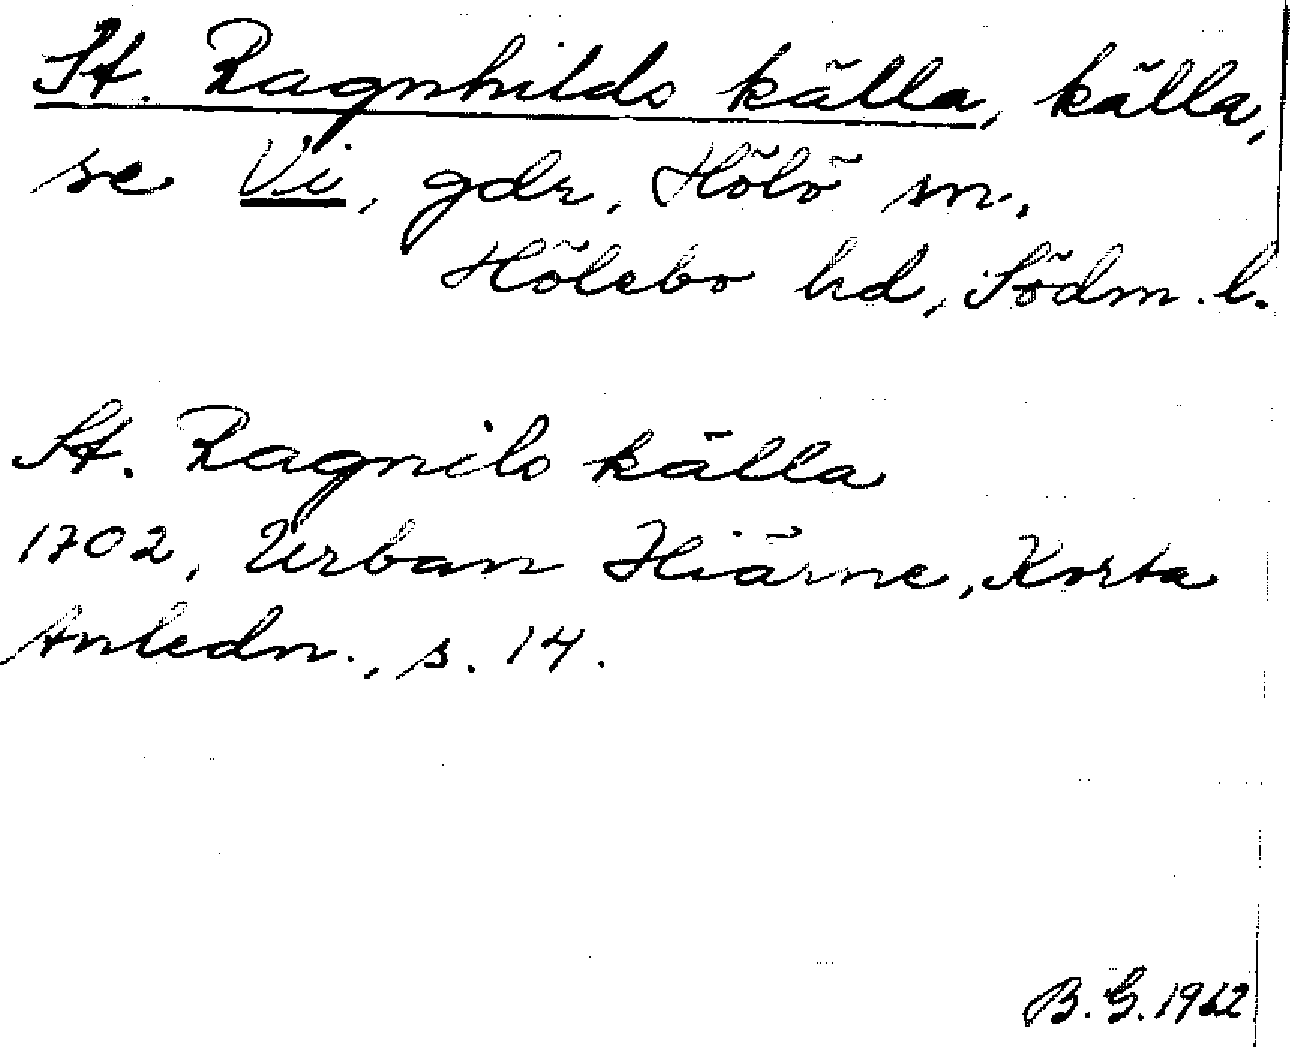 St. Ragnhilds källa, källa,
se Vi, gdr, Hölö sn,
Hölebo hd, Södm. l.
St. Ragnils källa
1702, Urban Hiärne, Korta
Anledn., s. 14.
B. G. 1962